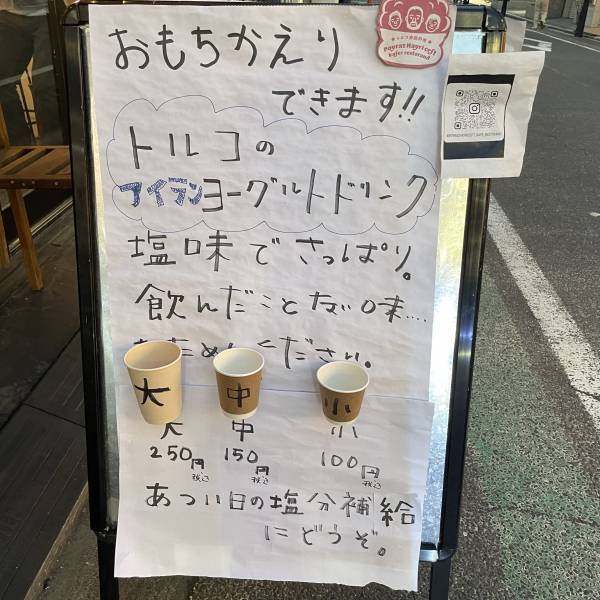 おもちかえり
できます!!
トルコの
アイランヨーグルトドリンク
塩味でさっぱり。
飲んだことない味....
ください。
大 中 小
大 中 小
250円 税込 150円 税込 100円 税込
あつい日の塩分補給
にどうぞ。